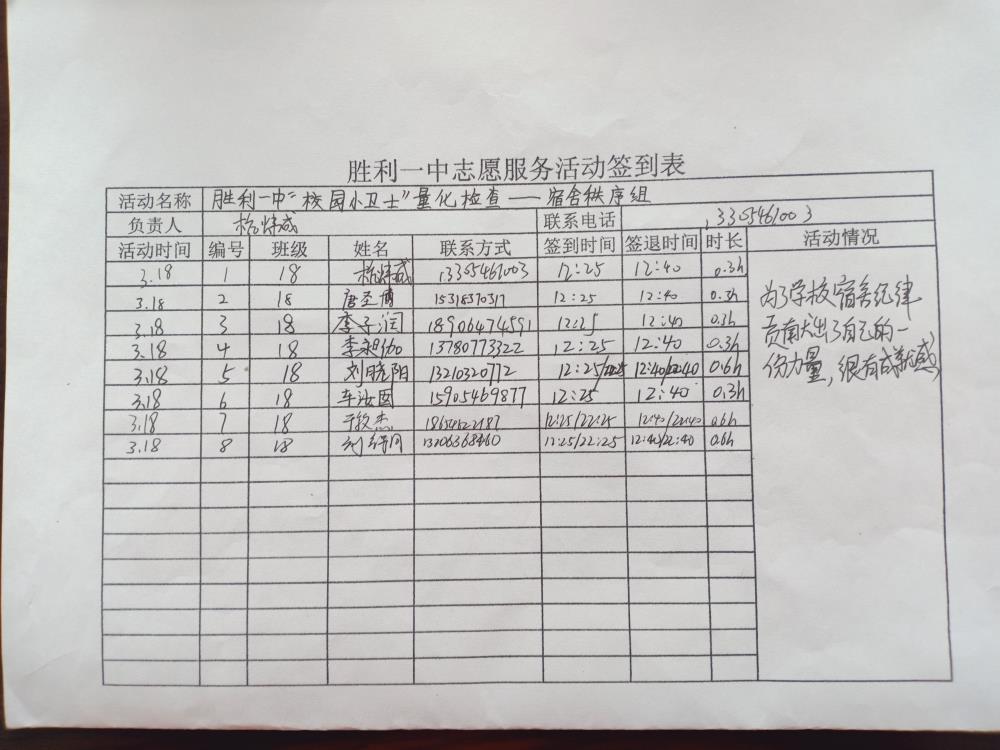 胜利一中志愿服务活动签到表
活动名称 胜利一中“校园小卫士”量化检查——宿舍秩序组
负责人 联系电话 13305461003
活动时间 编号 班级 姓名 联系方式 签到时间 签退时间 时长 活动情况
3.18 1 18 13305461003 12:25 12:40 0.3h
3.18 2 18 唐圣博 15318370317 12:25 12:40 0.3h
3.18 3 18 李子润 18906474591 12:25 12:40 0.3h
3.18 4 18 李昶伽 13780773322 12:25 12:40 0.3h
3.18 5 18 刘晓阳 13210320772 12:25/22:25 12:40/22:40 0.6h
3.18 6 18 车汝国 15905469877 12:25 12:40 0.3h
3.18 7 18 于牧杰 12:25/22:25 12:40/22:40 0.6h
3.18 8 18 13206368460 12:25/22:25 12:40/22:40 0.6h
为了学校宿舍纪律
贡献出了自己的一
份力量,很有成就感